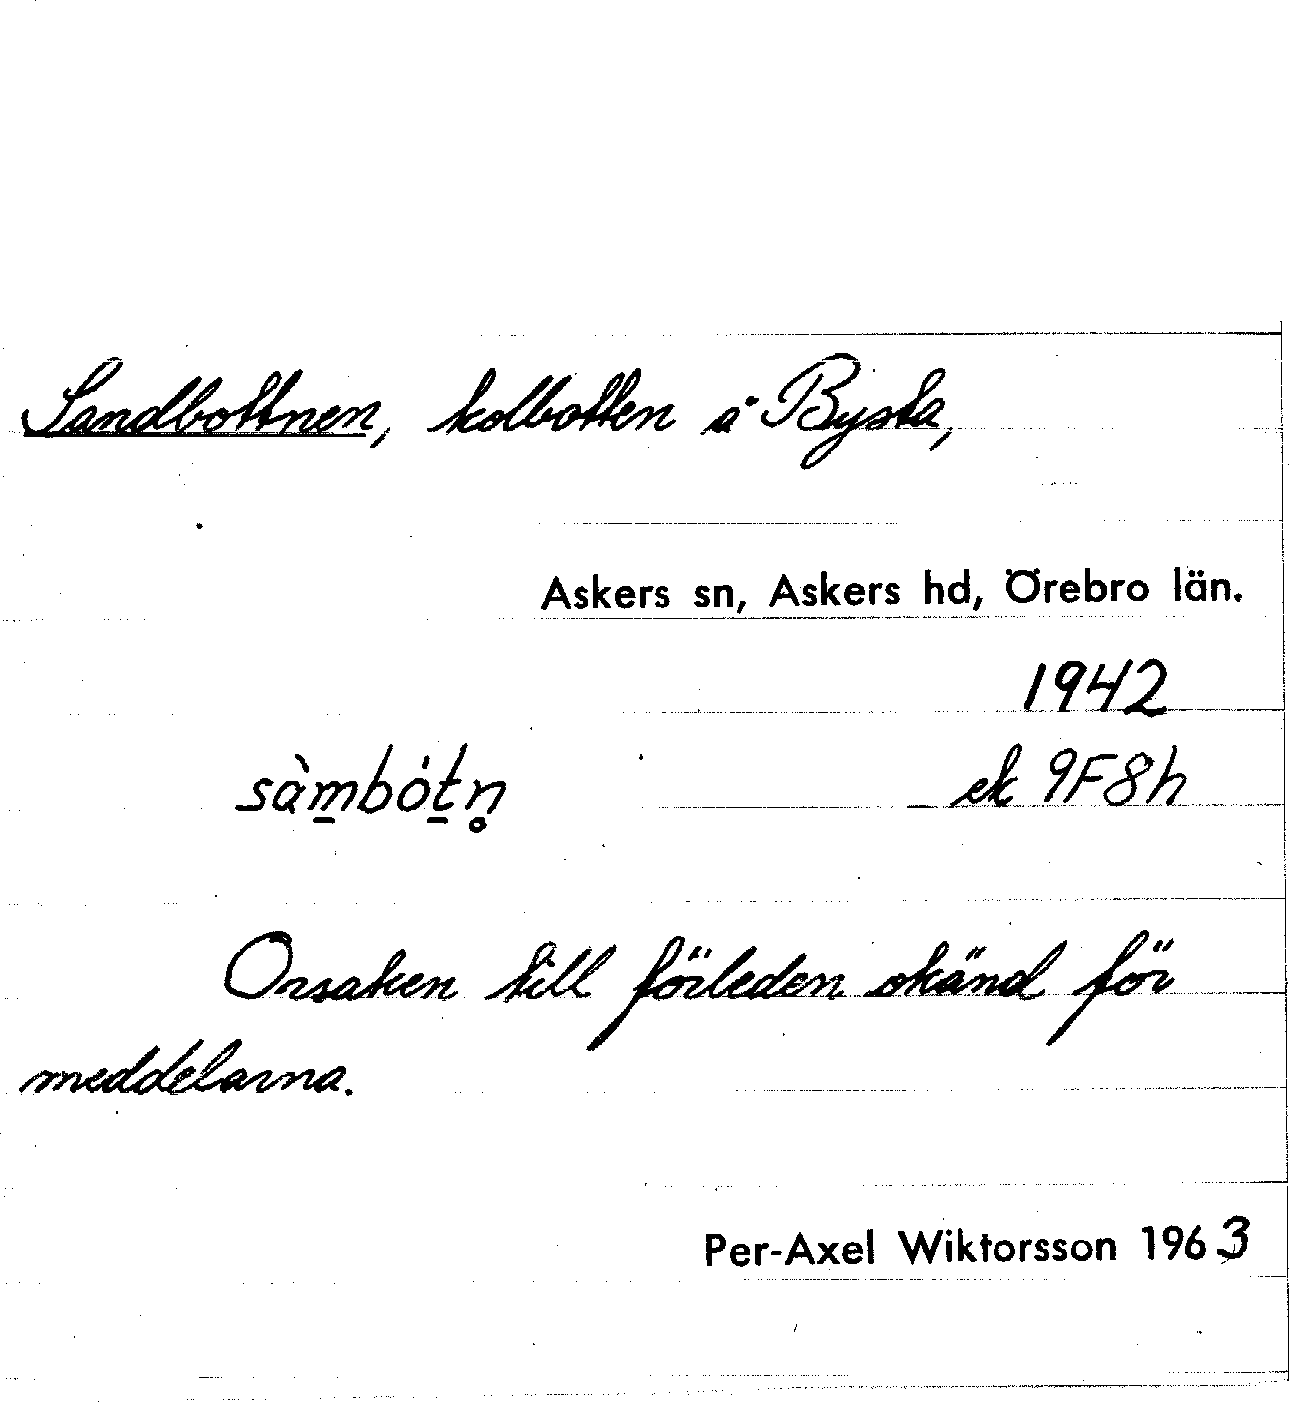 Sandbottnen, kolbotten å Bysta,
Askers sn, Askers hd, Örebro län.
1942
sàm̱bóṯn̥ ek 9F8h
Orsaken till förleden okänd för
meddelarna.
Per-Axel Wiktorsson 1963